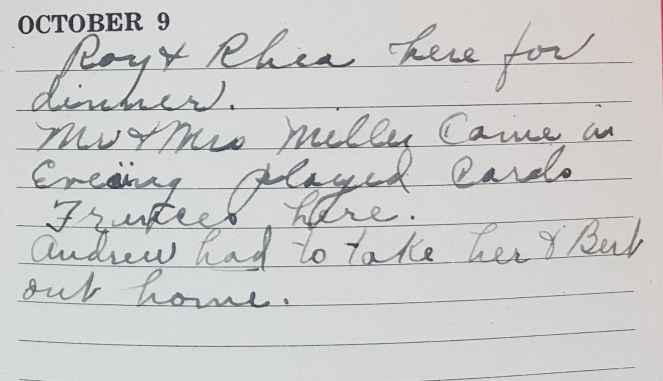 OCTOBER 9
Roy & Rhea here for
dinner.
Mr & Mrs Miller Came in
Evening played Cards
here.
Andrew had to take her & Bert
out home.